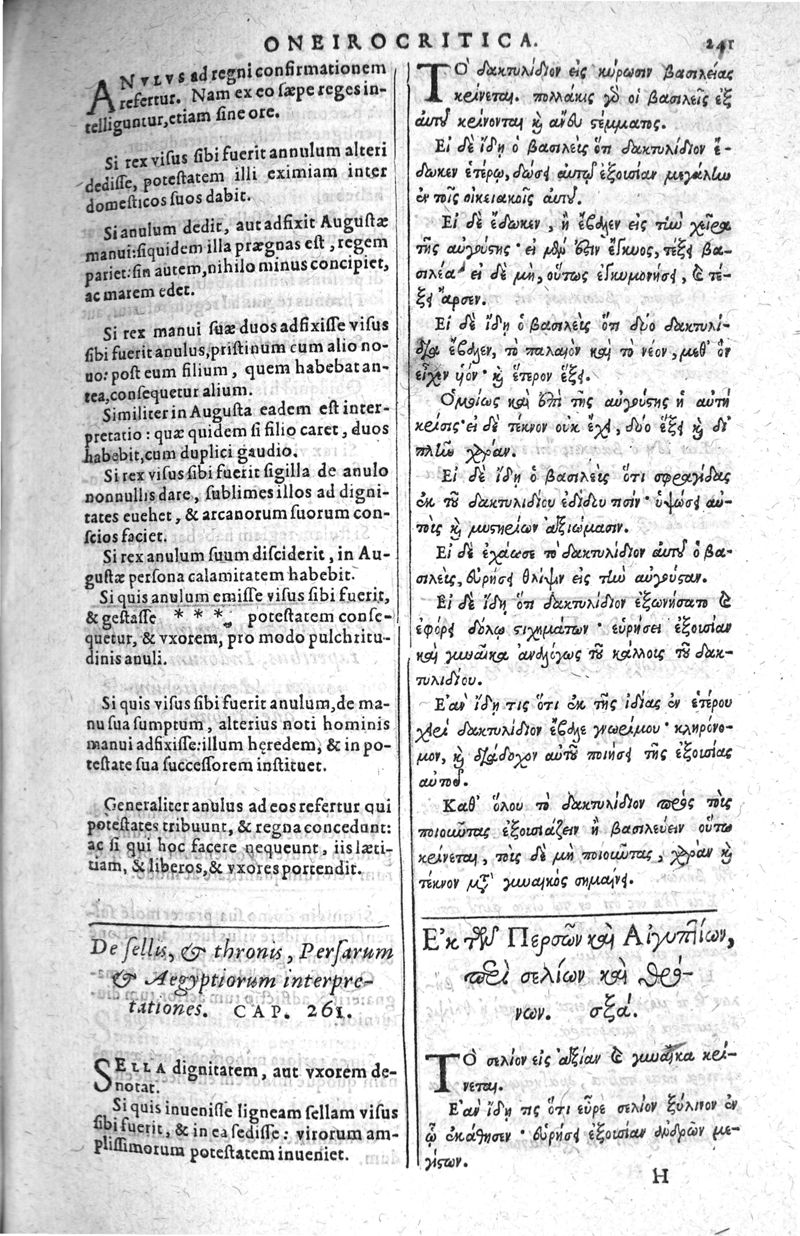 ONEIROCRITICA.
241
ANVLVS ad regni confirmationem
refertur. Nam ex eo sæpe reges in-
telliguntur, etiam sine ore.
Si rex visus sibi fuerit annulum alteri
dedisse, potestatem illi eximiam inter
domesticos suos dabit.
Si anulum dedit, aut adfixit Augustæ
manui: siquidem illa prægnas est, regem
pariet: sin autem, nihilo minus concipiet,
ac marem edet.
Si rex manui suæ duos adfixisse visus
sibi fuerit anulus, pristinum cum alio no-
uo: post eum filium, quem habebat an-
tea, consequetur alium.
Similiter in Augusta eadem est inter-
pretatio: quæ quidem si filio caret, duos
habebit, cum duplici gaudio.
Si rex visus sibi fuerit sigilla de anulo
nonnullis dare, sublimes illos ad digni-
tates euehet, & arcanorum suorum con-
scios faciet.
Si rex anulum suum disciderit, in Au-
gustæ persona calamitatem habebit.
Si quis anulum emisse visus sibi fuerit,
& gestasse * * *, potestatem conse-
quetur, & vxorem, pro modo pulchritu-
dinis anuli.
Si quis visus sibi fuerit anulum, de ma-
nu sua sumptum, alterius noti hominis
manui adfixisse: illum heredem, & in po-
testate sua successorem instituet.
Generaliter anulus ad eos refertur qui
potestates tribuunt, & regna concedunt:
ac si qui hoc facere nequeunt, iis læti-
tiam, & liberos, & vxores portendit.
De sellis, & thronis, Persarum
& Aegyptiorum interpre-
tationes. CAP. 261.
SELLA dignitatem, aut vxorem de-
notat.
Si quis inuenisse ligneam sellam visus
sibi fuerit, & in ea sedisse: virorum am-
plissimorum potestatem inueniet.
Τὸ δακτυλίδιον εἰς κύρωσιν βασιλείας
κρίνεται. πολλάκις γὸ οἱ βασιλεῖς ἐξ
αὐτοῦ κρίνονται καὶ ἄνθυ στέμματος.
Εἰ δὲ ἴδῃ ὁ βασιλεὺς ὅτι δακτυλίδιον ἔ-
δωκεν ἑτέρῳ, δώσει αὐτῷ ἐξουσίαν μεγάλην
ἐν τοῖς οἰκειακοῖς αὐτοῦ.
Εἰ δὲ ἔδωκεν, ἢ ἔβαλεν εἰς τὴν χεῖρα
τῆς αὐγούστης· εἰ μέν ἐστιν ἔγκυος, τέξει βα-
σιλέα· εἰ δὲ μὴ, οὕτως ἐγκυμονήσει, καὶ τέ-
ξει ἄρσεν.
Εἰ δὲ ἴδῃ ὁ βασιλεὺς ὅτι δύο δακτυλί-
δια ἔβαλεν, τὸ παλαιὸν καὶ τὸ νέον, μεθ' ὃν
εἶχεν υἱὸν· καὶ ἕτερον ἕξει.
Ὁμοίως καὶ ἐπὶ τῆς αὐγούστης ἡ αὐτὴ
κρίσις· εἰ δὲ τέκνον οὐκ ἔχει, δύο ἕξει καὶ δι-
πλῆν χαράν.
Εἰ δὲ ἴδῃ ὁ βασιλεὺς ὅτι σφραγίδας
ἐκ τοῦ δακτυλιδίου ἐδίδου τισὶν· ὑψώσει αὐ-
τοὺς καὶ μυστηρίων ἀξιώμασιν.
Εἰ δὲ ἐχάωσε τὸ δακτυλίδιον αὐτοῦ ὁ βα-
σιλεὺς, εὑρήσει θλίψιν εἰς τὴν αὐγούσταν.
Εἰ δὲ ἴδῃ ὅτι δακτυλίδιον ἐξωνήσατο καὶ
ἐφόρει δόλῳ στιχημάτων· εὑρήσει ἐξουσίαν
καὶ γυναῖκα ἀναλόγως τοῦ κάλλους τοῦ δακ-
τυλιδίου.
Ἐὰν ἴδῃ τις ὅτι ἐκ τῆς ἰδίας ἐν ἑτέρου
χειρὶ δακτυλίδιον ἔβαλε γνωρίμου· κληρονό-
μον, καὶ διάδοχον αὐτοῦ ποιήσει τῆς ἐξουσίας
αὐτοῦ.
Καθ' ὅλου τὸ δακτυλίδιον πρὸς τοὺς
ποιοῦντας ἐξουσιάζειν ἢ βασιλεύειν οὕτω
κρίνεται, τοῖς δὲ μὴ ποιοῦντας, χαρὰν καὶ
τέκνον μετὰ γυναικὸς σημαίνει.
Ἐκ τῶν Περσῶν καὶ Αἰγυπτίων,
περὶ σελίων καὶ θρό-
νων. σξα΄.
Τὸ σελίον εἰς ἀξίαν καὶ γυναῖκα κρί-
νεται.
Ἐὰν ἴδῃ τις ὅτι εὗρε σελίον ξύλινον ἐν
ᾧ ἐκάθησεν· εὑρήσει ἐξουσίαν ἀνδρῶν με-
γίστων.
H